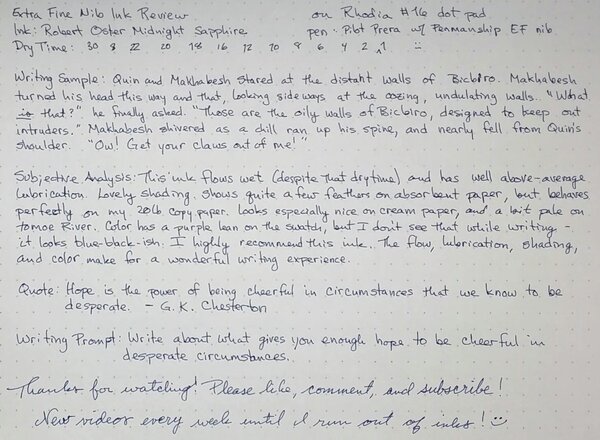 Extra Fine Nib Ink Review on Rhodia #16 dot pad
Ink: Robert Oster Midnight Sapphire pen: Pilot Prera w/ Penmanship EF nib
Dry Time: 30 8 22 20 18 16 12 10 8 6 4 2 1
Writing Sample: Quin and Makhabesh stared at the distant walls of Bicbiro. Makhabesh
turned his head this way and that, looking sideways at the oozing, undulating walls. "What
is that?" he finally asked. "Those are the oily walls of Bicbiro, designed to keep out
intruders." Makhabesh shivered as a chill ran up his spine, and nearly fell from Quin's
shoulder. "Ow! Get your claws out of me!"
Subjective Analysis: This ink flows wet (despite that dry time) and has well above-average
lubrication. Lovely shading. Shows quite a few feathers on absorbent paper, but behaves
perfectly on my 20lb copy paper. Looks especially nice on cream paper, and a bit pale on
Tomoe River. Color has a purple lean on the swatch, but I don't see that while writing -
it looks blue-black-ish. I highly recommend this ink. The flow, lubrication, shading,
and color make for a wonderful writing experience.
Quote: Hope is the power of being cheerful in circumstances that we know to be
desperate. - G. K. Chesterton
Writing Prompt: Write about what gives you enough hope to be cheerful in
desperate circumstances.
Thanks for watching! Please like, comment, and subscribe!
New videos every week until I run out of inks! :)